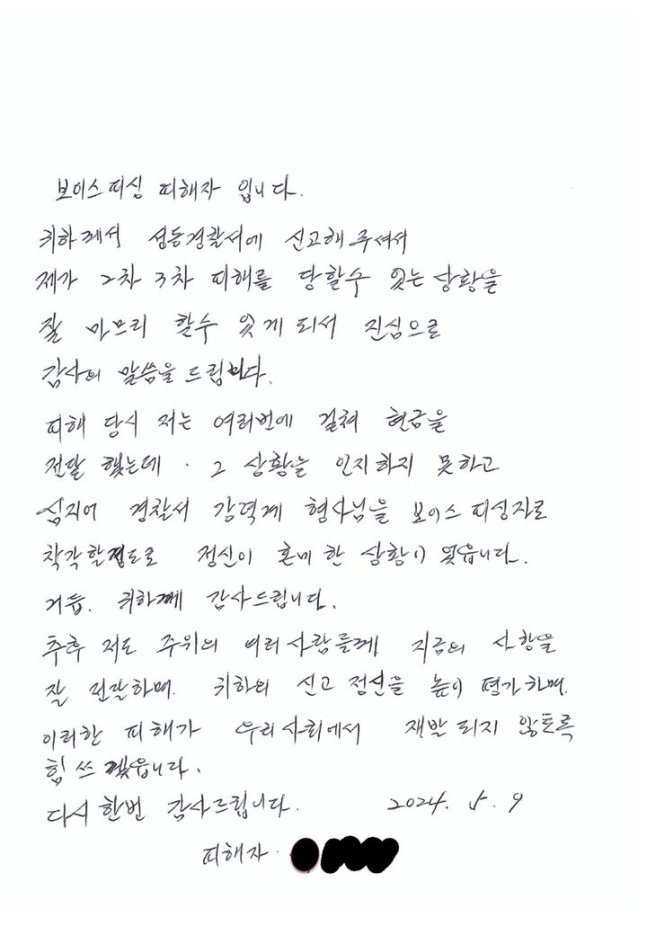 보이스피싱 피해자 입니다.
귀하께서 성동경찰서에 신고해 주셔서
제가 2차 3차 피해를 당할수 있는 상황을
잘 마므리 할수 있게 되서 진심으로
감사의 말씀을 드립니다.
피해 당시 저는 여러번에 걸쳐 현금을
전달 했는데 . 그 상황을 인지하지 못하고
심지어 경찰서 강력계 형사님을 보이스피싱자로
착각할정도로 정신이 혼미한 상황이 됬읍니다.
거듭. 귀하께 감사드립니다.
추후 저도 주위의 여러사람들께 지금의 사항을
잘 전달하며. 귀하의 신고 정신을 높이 평가하며.
이러한 피해가 우리사회에서 재발되지 않토록
힘쓰겠읍니다.
다시한번 감사드립니다. 2024. 5. 9
피해자